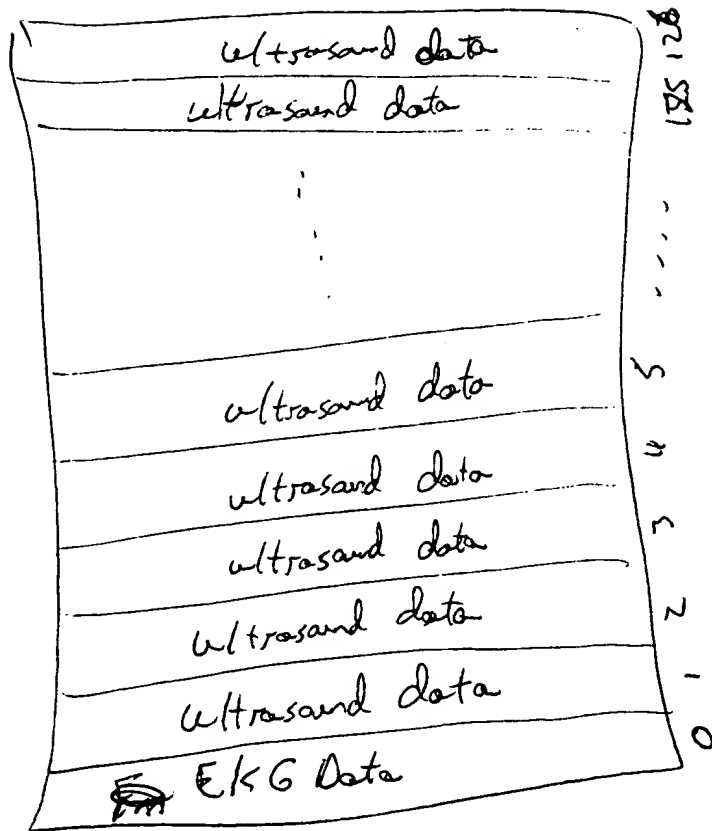 ultrasound data
ultrasound data
ultrasound data
ultrasound data
ultrasound data
ultrasound data
ultrasound data
EKG Data
128
5
4
3
2
1
0